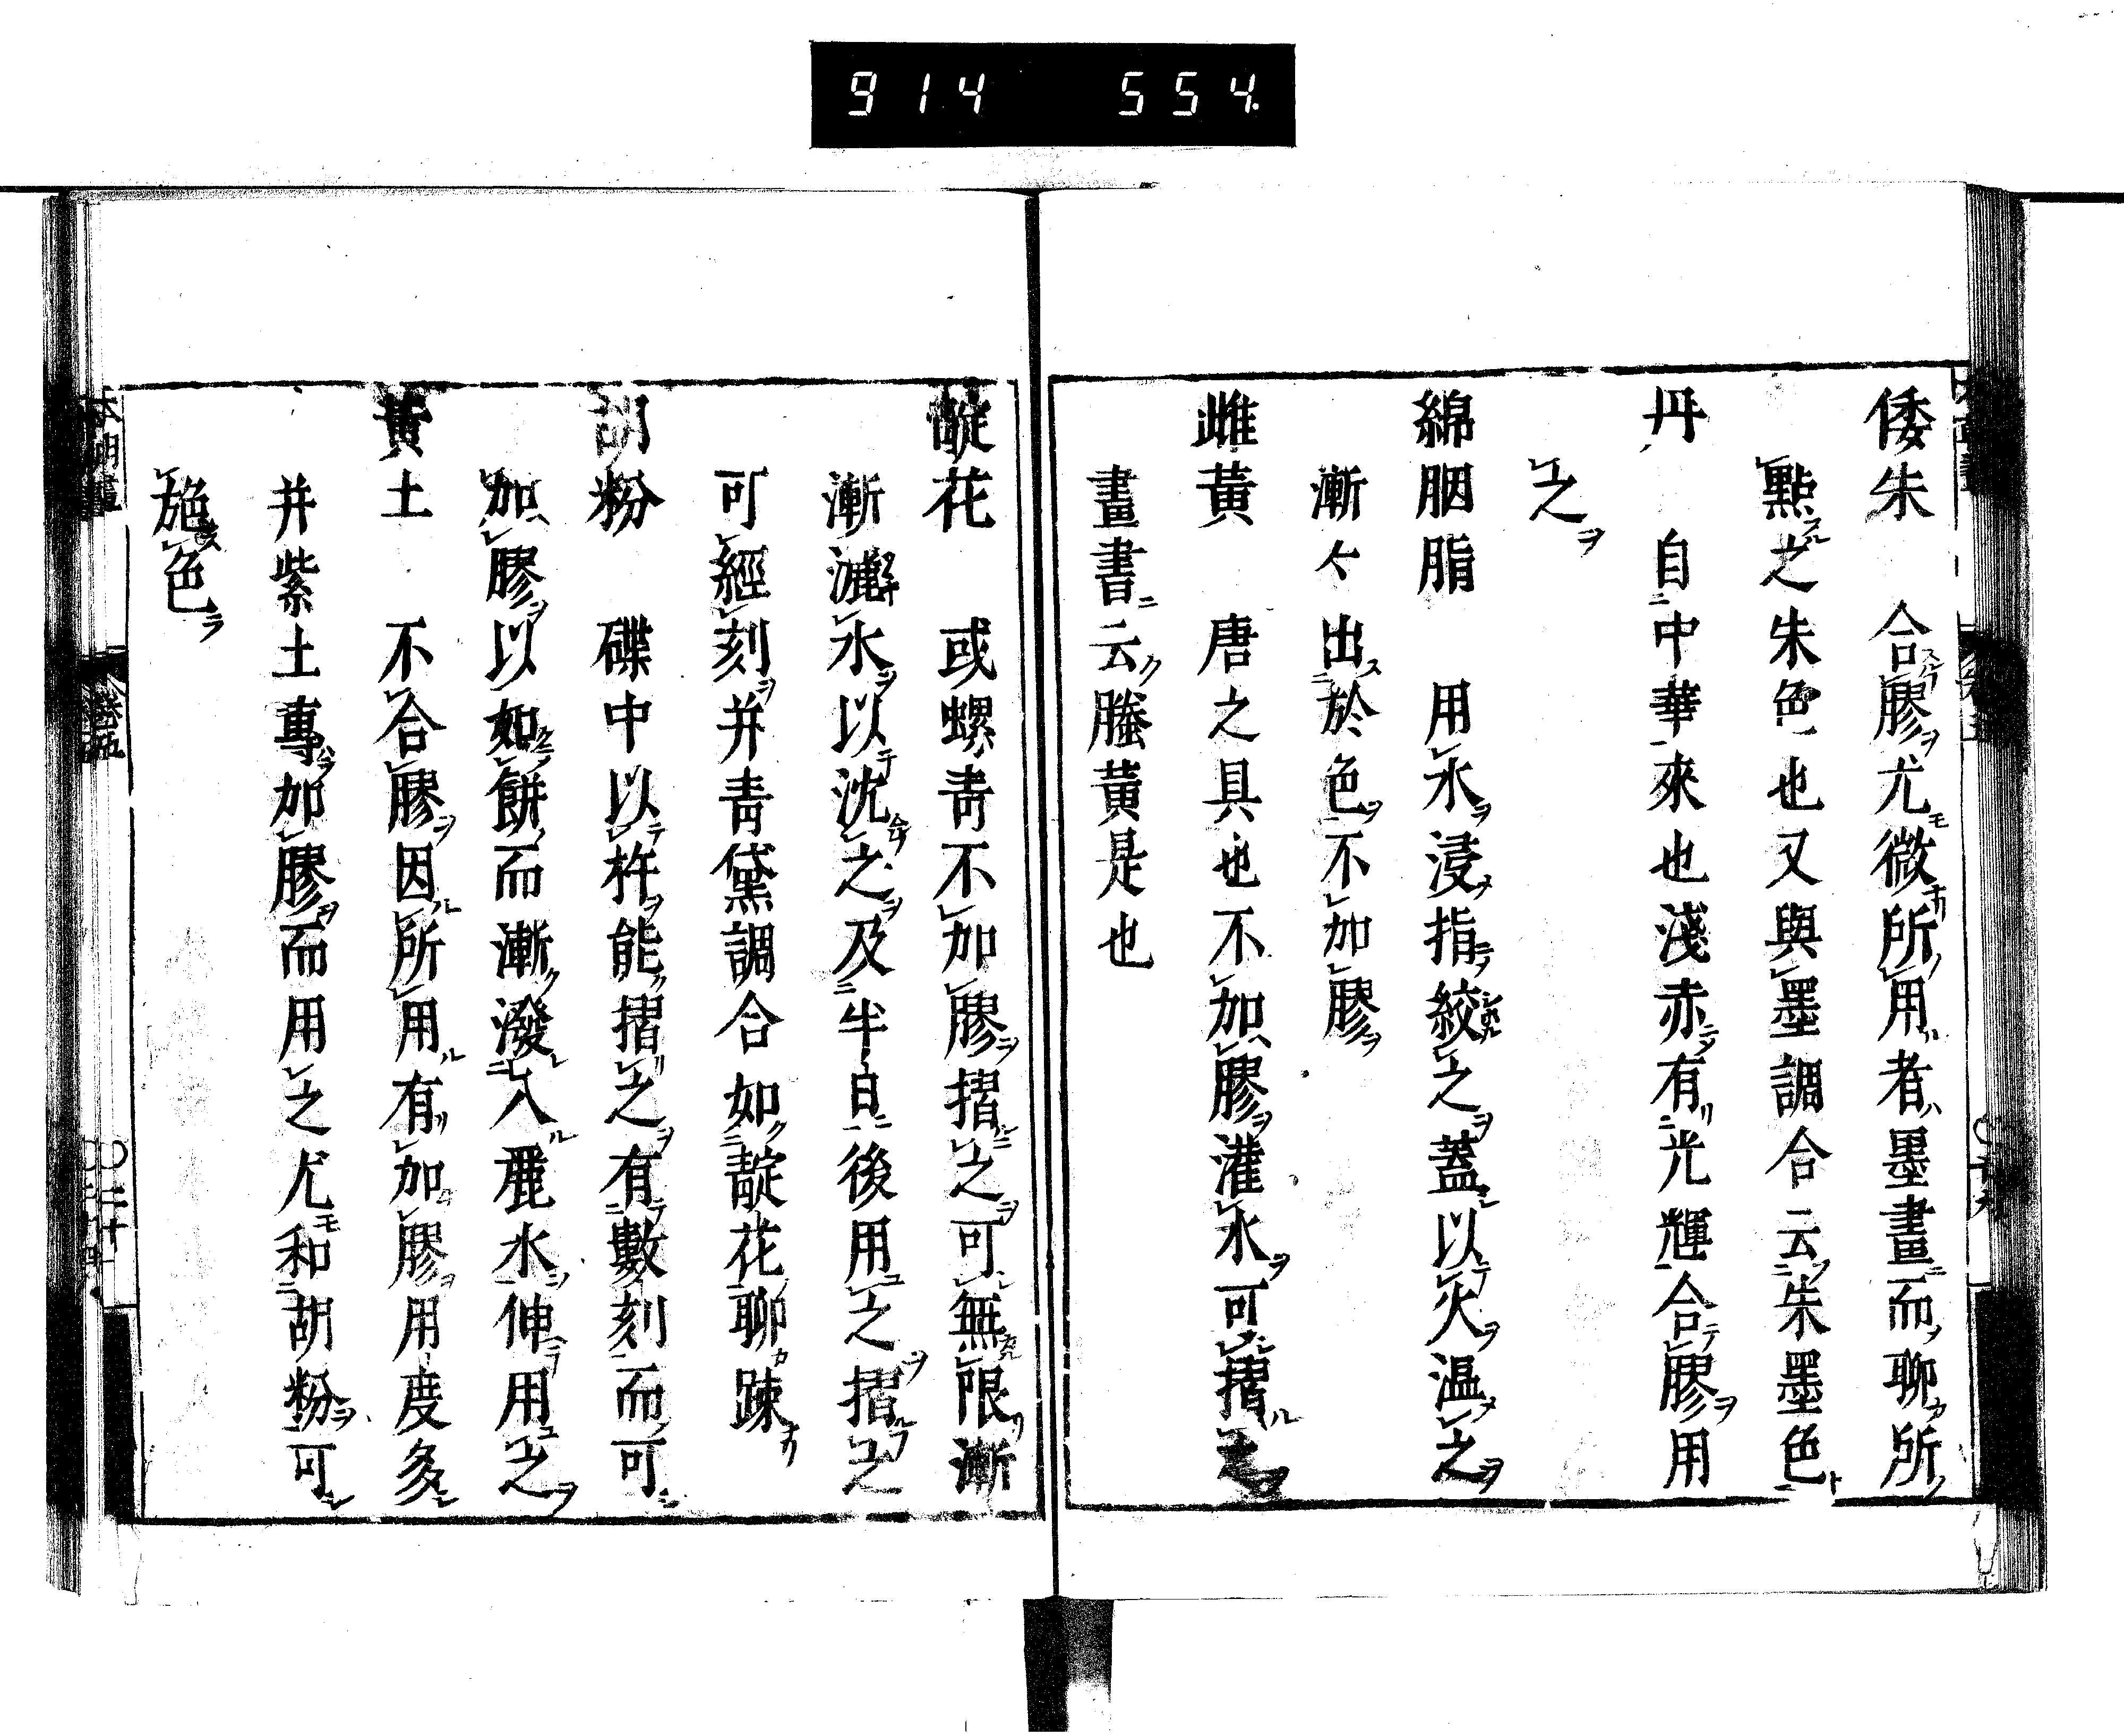 914 554.
倭朱 合膠尤微所用者墨畫而聊所
點之朱色也又與墨調合云朱墨色
丹 自中華來也淺赤有光輝合膠用
之
綿胭脂 用水浸指絞之蓋以火温之
漸々出於色不加膠
雌黃 唐之具也不加膠灌水可摺之
畫書云螣黃是也
靛花 或螺青不加膠摺之可無限漸
漸灑水以沈之及半日後用之摺之
可經刻并青黛調合如靛花聊踈
胡粉 碟中以杵能摺之有數刻而可
加膠以如餅而漸潑入麁水伸用之
黃土 不合膠因所用有加膠用度多
并紫土專加膠而用之尤和胡粉可
施色